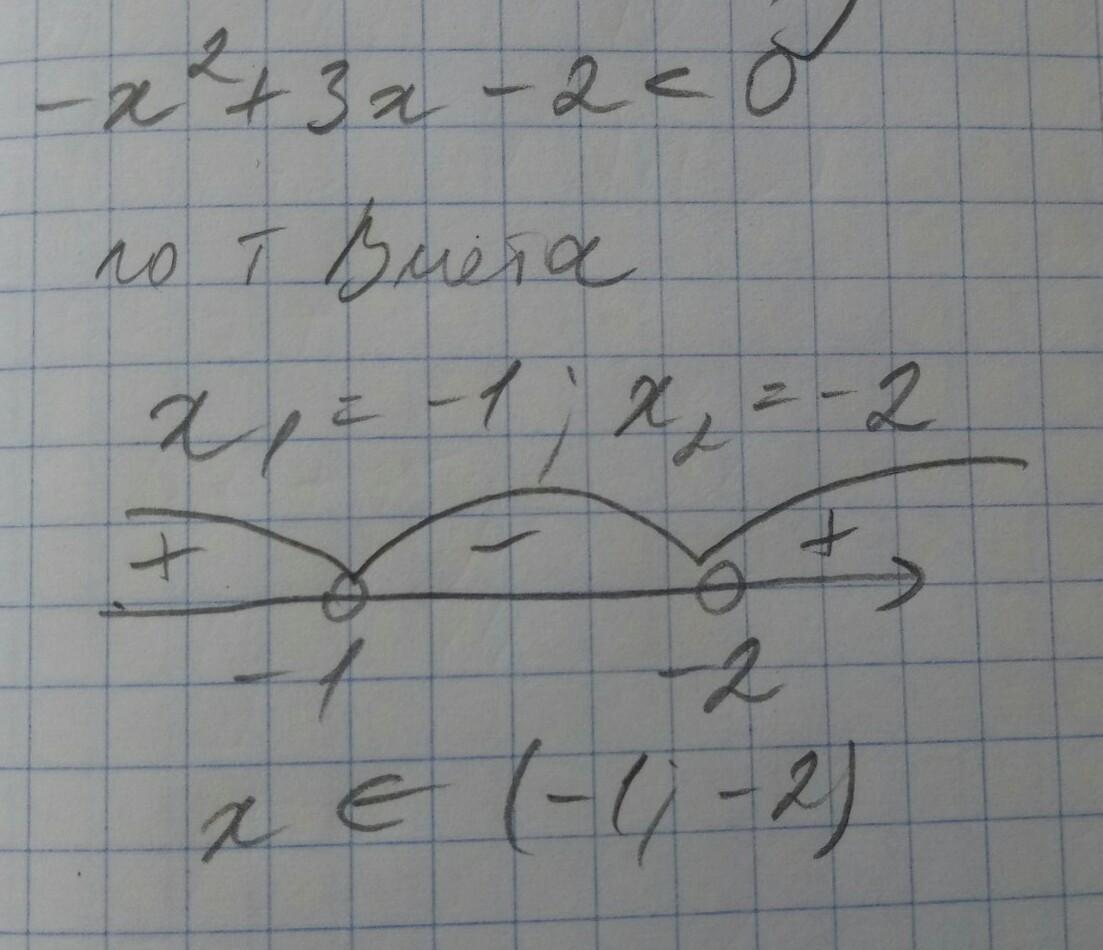 -x²+3x-2<0
по т Виета
x₁=-1; x₂=-2
+ - +
-1 -2
x ∈ (-1; -2)